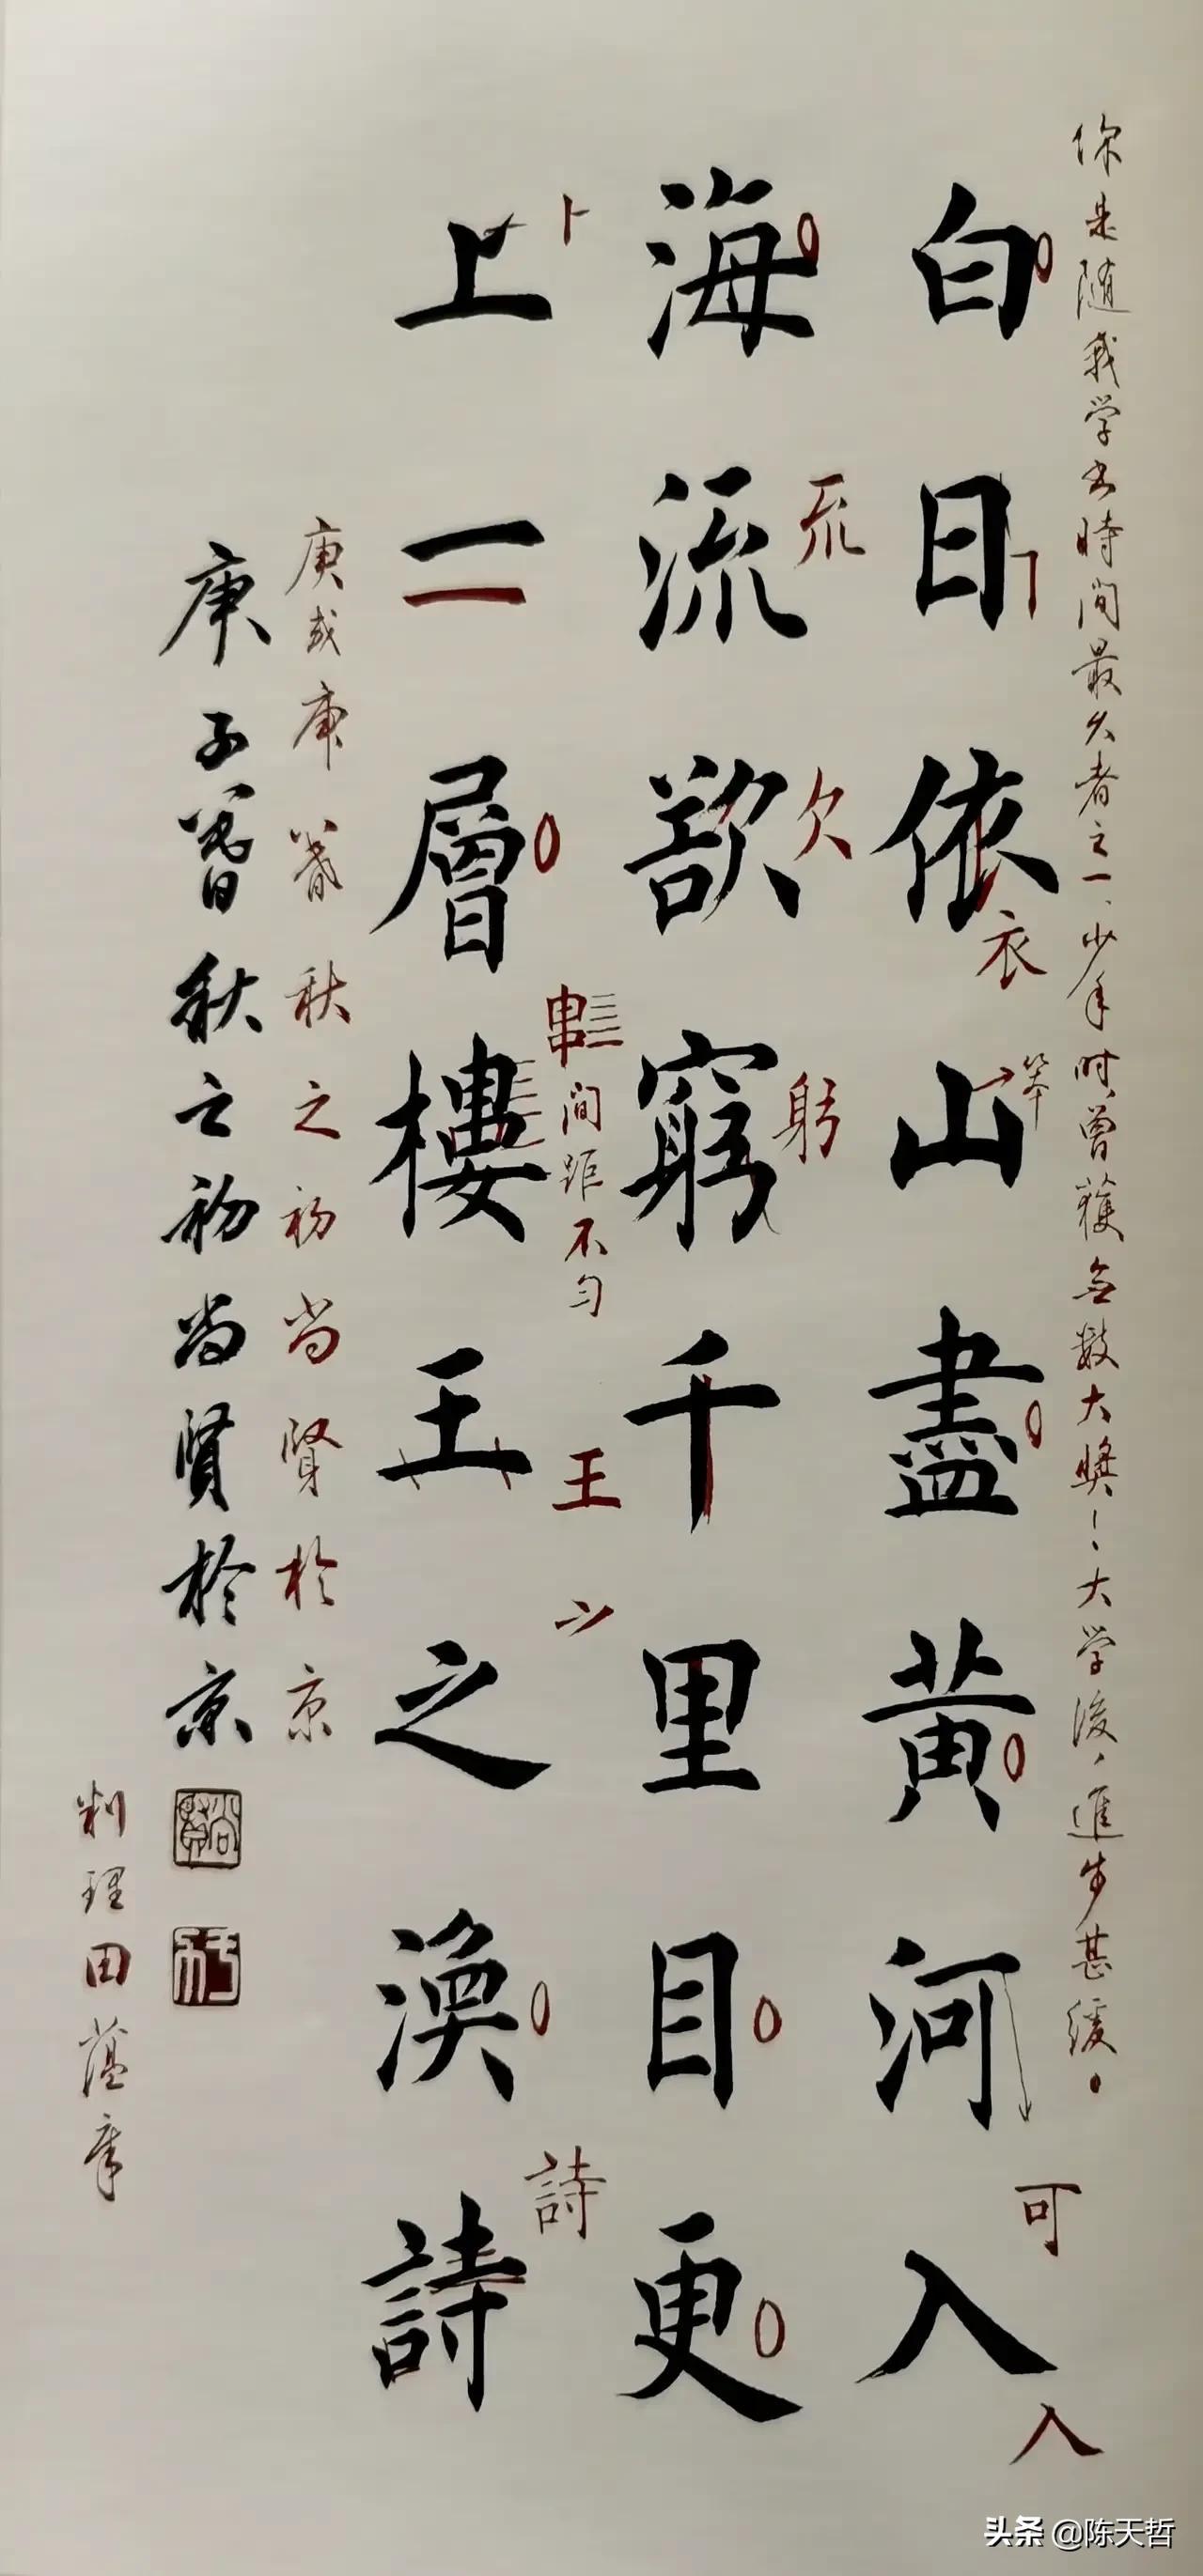 你是随我学书時间最久者之一、少年时曾獲无数大奖！大学後，進步甚缓。
白日依山盡黄河入
海流欲窮千里目更
上一層樓王之涣詩
庚子暮秋之初尚賢於京
卜
㐬
欠
衣
笨
躬
間距不勻
王
詩
可
入
庚或庚暮秋之初尚賢於京
尚賢
田蕴章
头条 @陈天哲